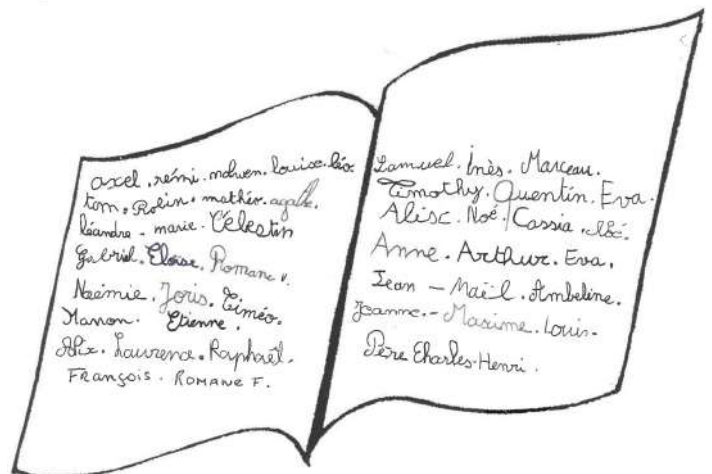 axel. rémi. malwen. louise. léo.
tom. Robin. mathéo. agathe.
léandre. marie. Célestin
Gabriel. Eloïse. Romane V.
Noémie. Joris. Timéo.
Manon. Etienne.
Alix. Laurence. Raphaël.
François. ROMANE F.
Samuel. Inès. Marceau.
Timothy. Quentin. Eva.
Alise. Noé. Cassia.
Anne. Arthur. Eva.
Jean - Maël. Ambeline.
Joanne. - Maxime. Louis.
Père Charles-Henri.